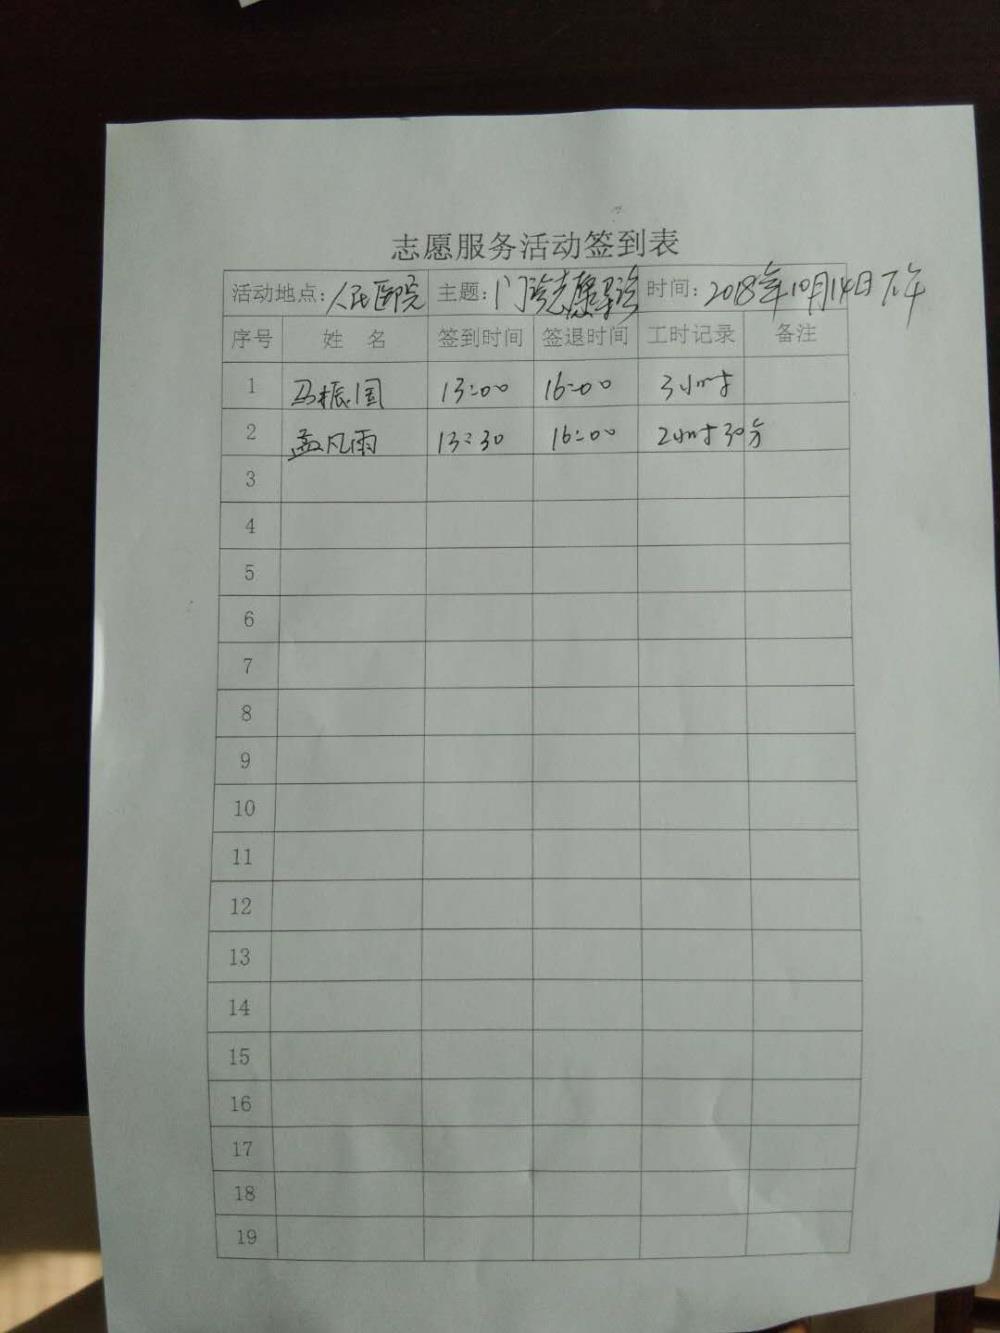 志愿服务活动签到表
活动地点：人民医院 主题：门诊志愿导诊 时间：2018年10月14日下午
序号 姓 名 签到时间 签退时间 工时记录 备注
1 马振国 13:00 16:00 3小时
2 孟凡雨 13:30 16:00 2小时30分
3
4
5
6
7
8
9
10
11
12
13
14
15
16
17
18
19